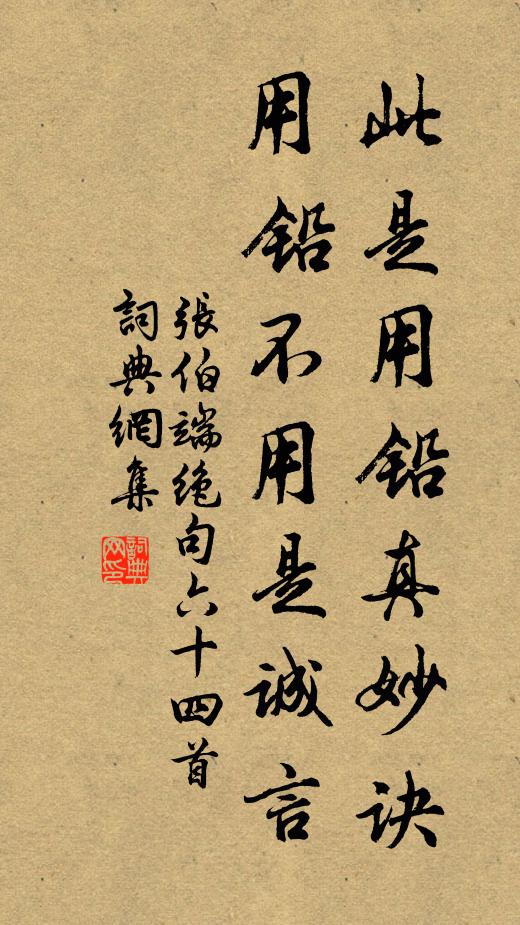 此是用铅真妙诀
用铅不用是诚言
張伯端绝句六十四首
詞典網集
詞典網印